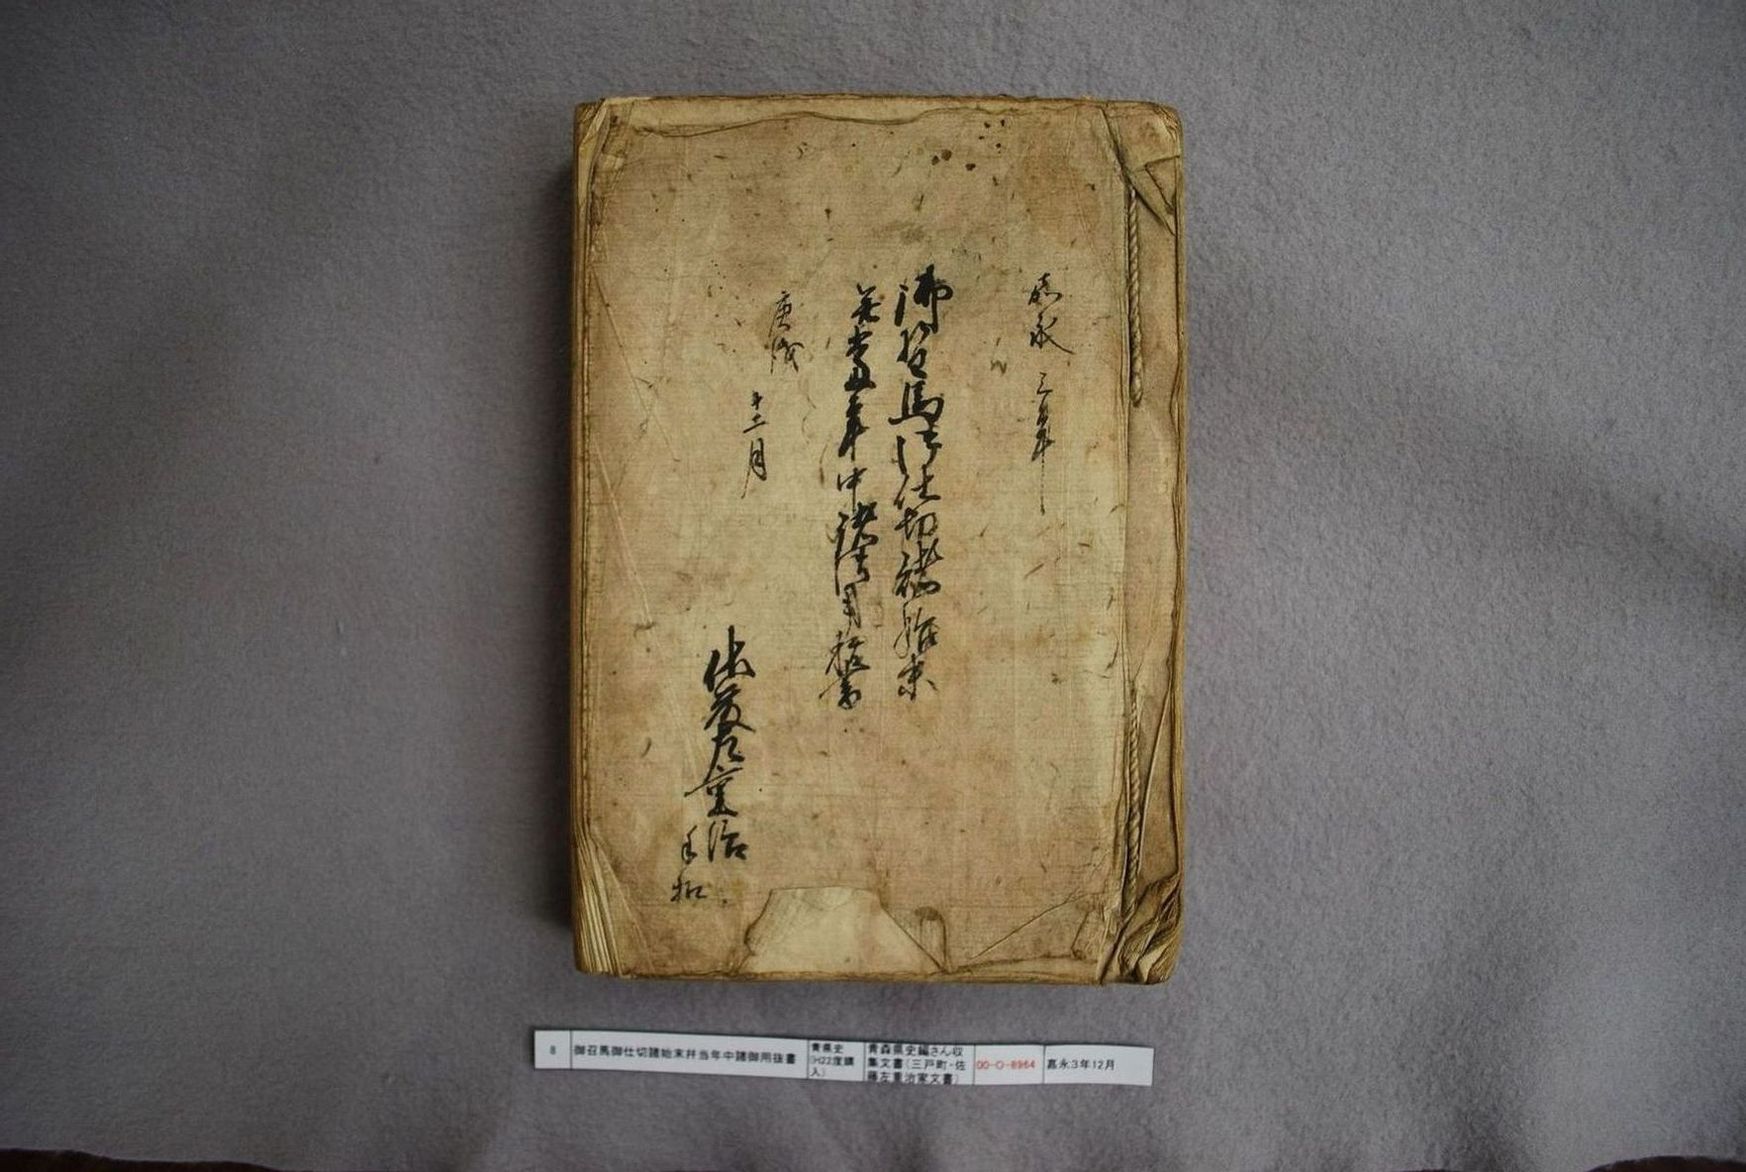 嘉永三年
御召馬御仕切諸始末
并当年中諸御用抜書
庚戌
十二月
佐藤左重治
手扣
8
御召馬御仕切諸始末并当年中諸御用抜書
青県史
(H22度購
入)
青森県史編さん収
集文書(三戸町・佐
藤左重治家文書)
00-O-8964
嘉永3年12月